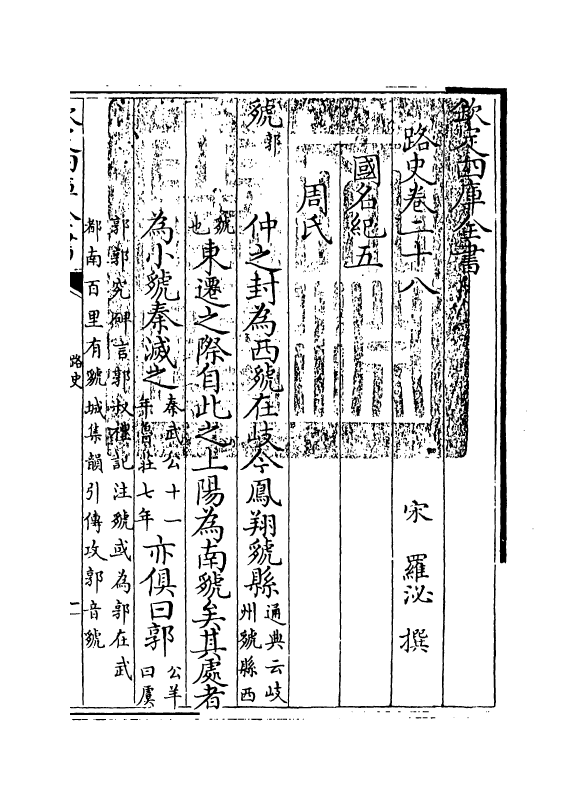 欽定四庫全書
路史卷二十八
宋 羅泌 撰
國名紀五
周氏
虢郭 仲之封為西虢在岐今鳳翔虢縣通典云岐州虢縣西
虢也東遷之際自此之上陽為南虢矣其處者
為小虢秦滅之秦武公十一年魯莊七年亦俱曰郭公羊曰虞
郭郭究碑言郭叔禮記注虢或為郭在武
都南百里有虢城集韻引傳攻郭音虢
路史